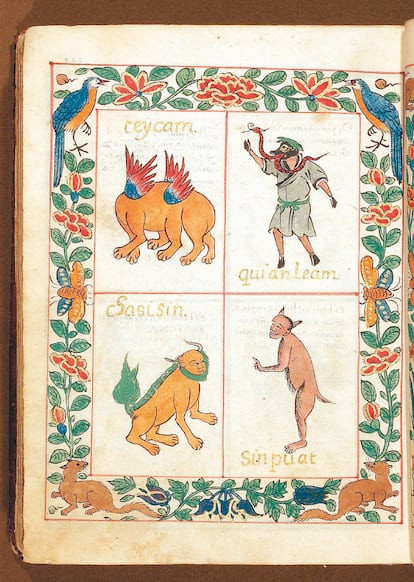 teycam.
quianleam.
Sasisin.
Sinpuat